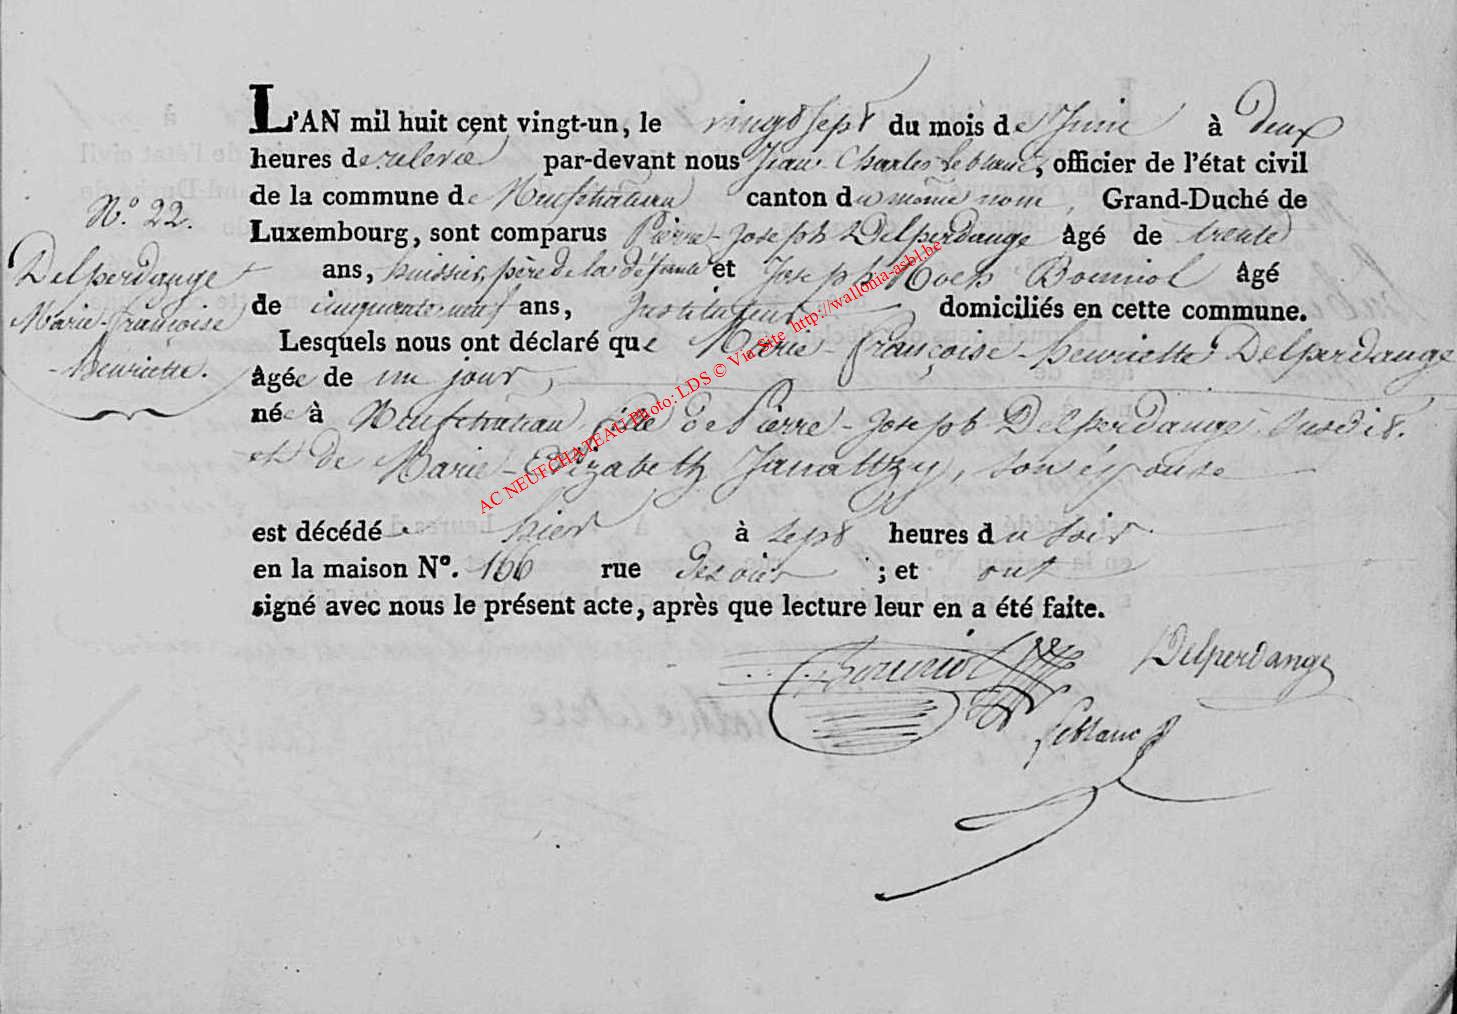 L'AN mil huit cent vingt-un, le vingt sept du mois de Juin à deux
heures de relevée par-devant nous Jean-Charles Leblanc, officier de l'état civil
de la commune de Neufchateau canton du même nom, Grand-Duché de
N.° 22.
Luxembourg, sont comparus Pierre-Joseph Delperdange âgé de trente
Delperdange
ans, huissier, père de la défunte et Joseph Bouniol âgé
Marie-françoise
de cinquante neuf ans, Instituteur domiciliés en cette commune.
Lesquels nous ont déclaré que Marie-françoise-henriette Delperdange
-henriette.
âgée de un jour,
née à Neufchateau, fille de Pierre-Joseph Delperdange susdit.
et de Marie-Elizabeth son épouse
est décédée hier à sept heures du soir
en la maison N°. 166 rue ; et ont
signé avec nous le présent acte, après que lecture leur en a été faite.
Bouniol Delperdange
Leblanc
AC NEUFCHATEAU Photo: LDS © Via Site http://wallonia-asbl.be